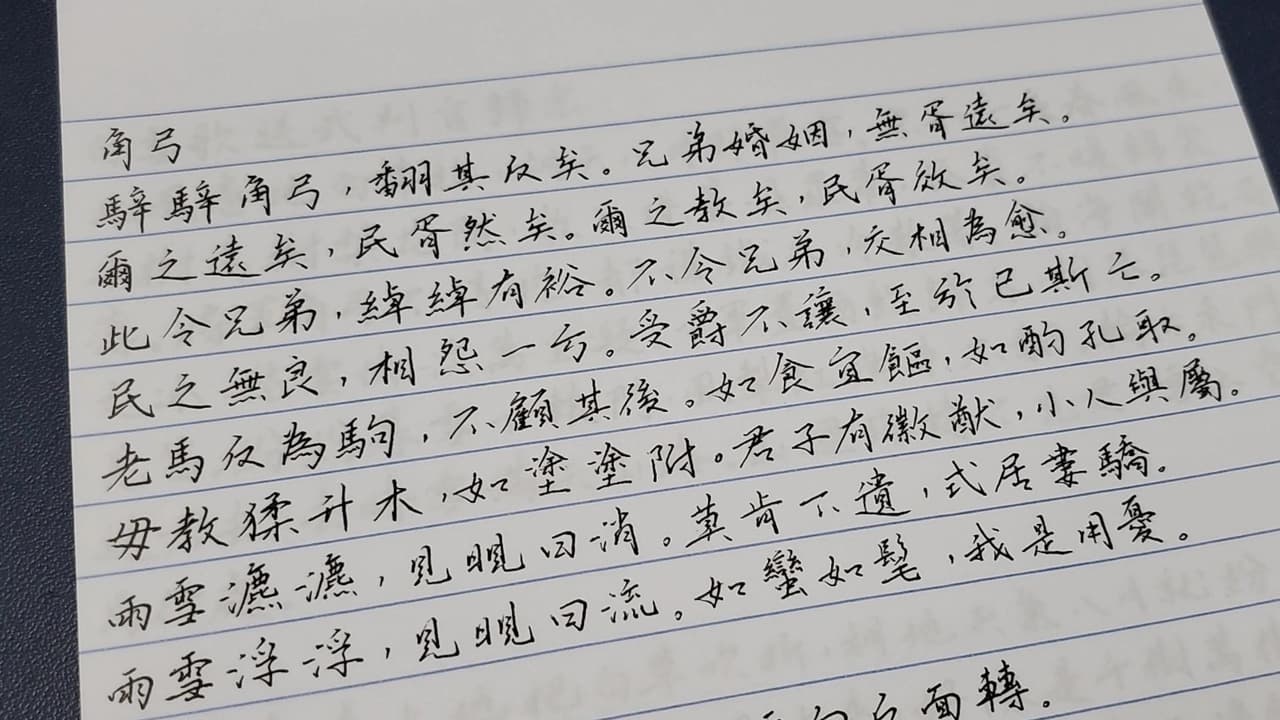 角弓
騂騂角弓，翩其反矣。兄弟婚姻，無胥遠矣。
爾之遠矣，民胥然矣。爾之教矣，民胥效矣。
此令兄弟，綽綽有裕。不令兄弟，交相為愈。
民之無良，相怨一方。受爵不讓，至於已斯亡。
老馬反為駒，不顧其後。如食宜饇，如酌孔取。
毋教猱升木，如塗塗附。君子有徽猷，小人與屬。
雨雪瀌瀌，見晛曰消。莫肯下遺，式居婁驕。
雨雪浮浮，見晛曰流。如蠻如髦，我是用憂。
面轉。